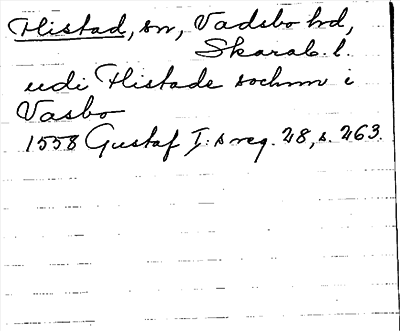 Flistad, sn, Vadsbo hd,
Skarab. l.
udi Flistade sochnn i
Vasbo
1558 Gustaf I:s reg. 28, s. 263.